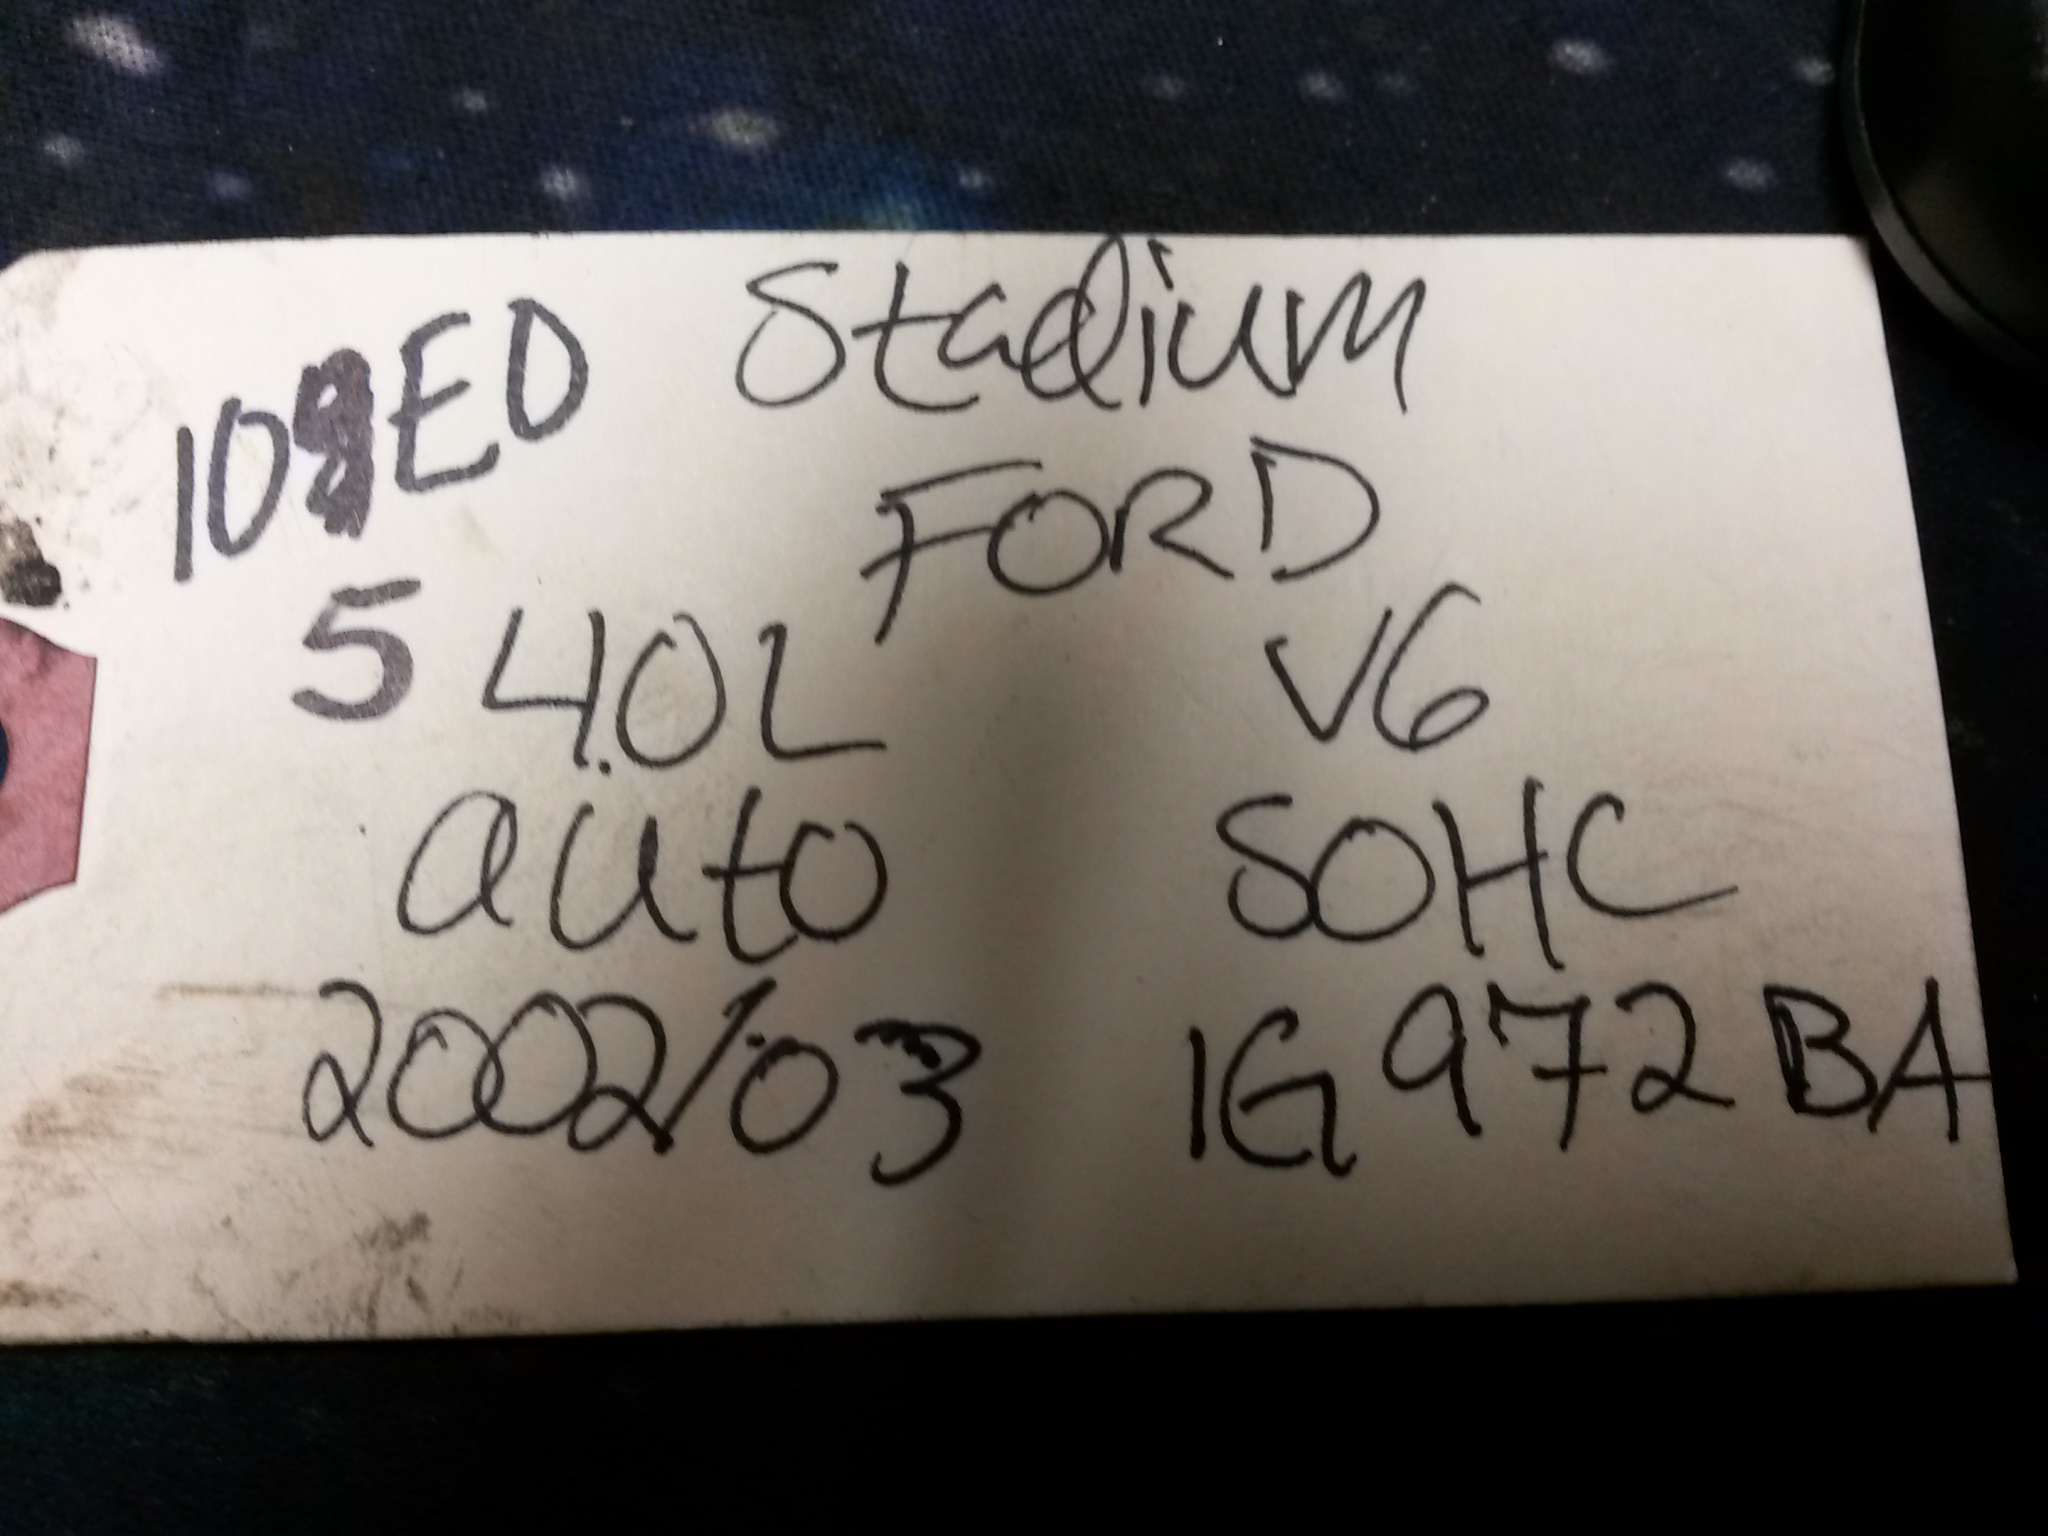 Stadium
10 ED
FORD
5 4.0L V6
auto SOHC
2002/03 1G972BA